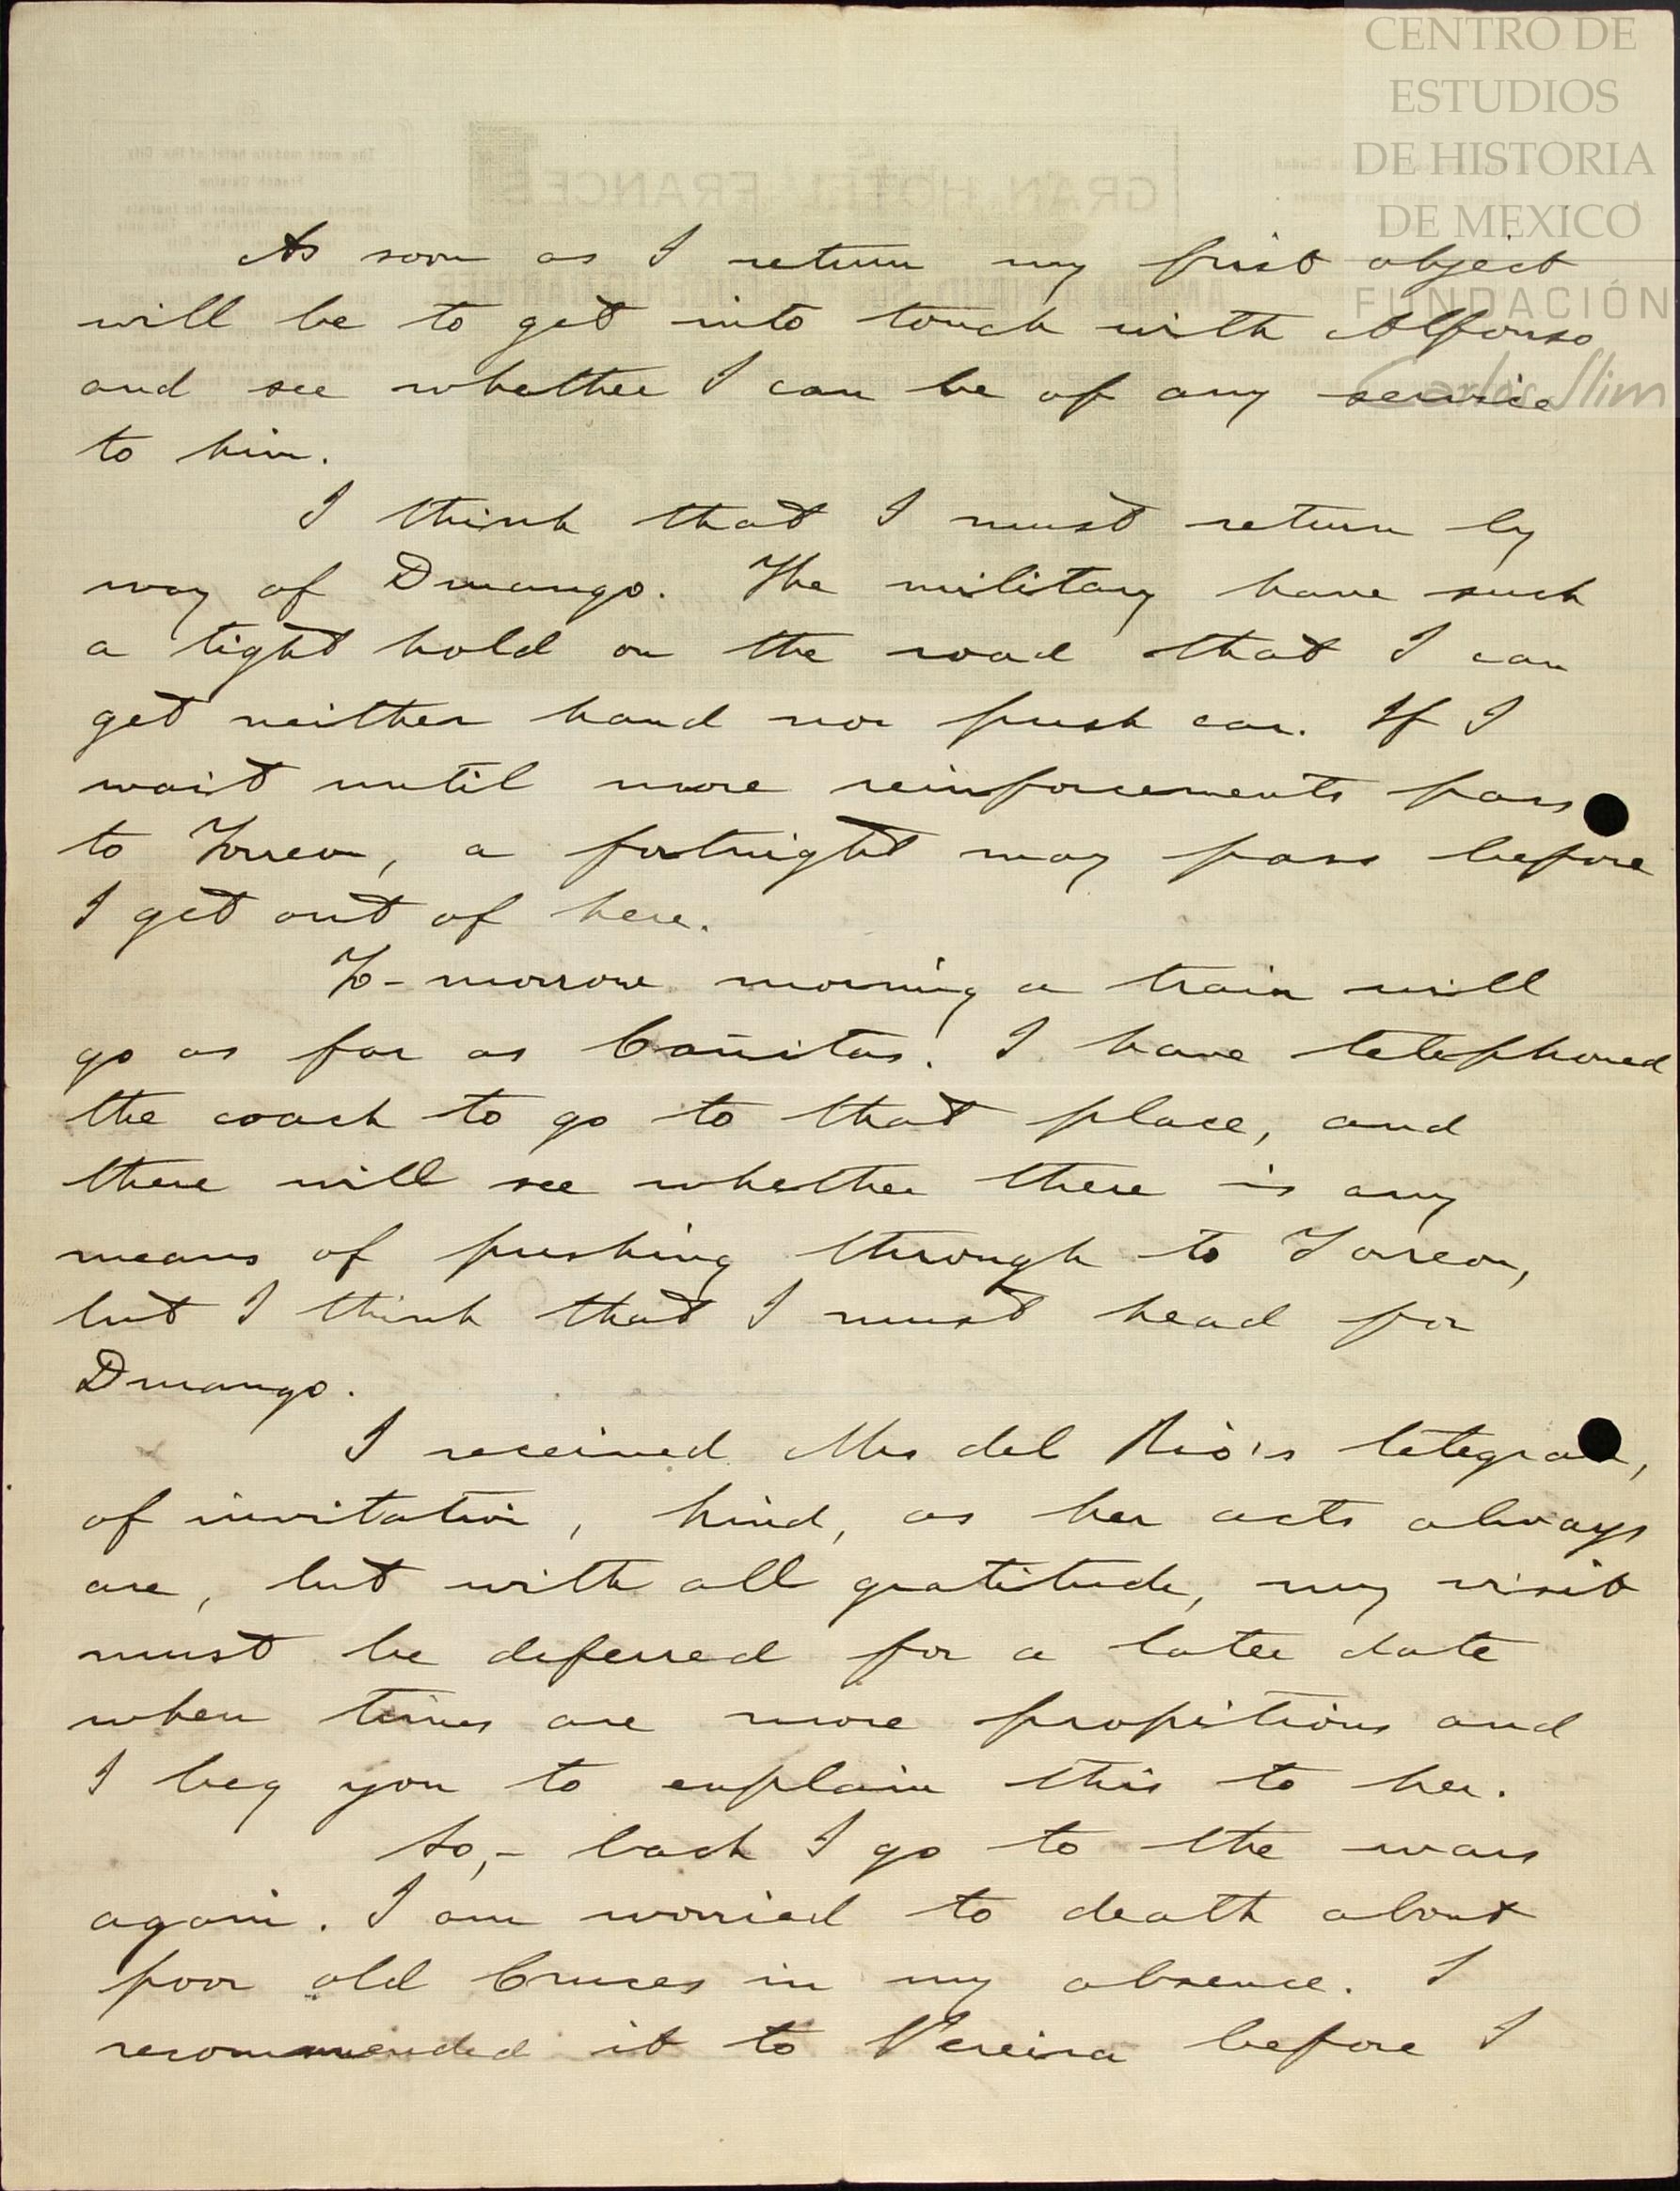 CENTRO DE
ESTUDIOS
DE HISTORIA
DE MEXICO
FUNDACIÓN
Carlos Slim
GRAN HOTEL FRANCES
As soon as I return my first object
will be to get into touch with Alfonso
and see whether I can be of any service
to him.
I think that I must return by
way of Durango. The military have such
a tight hold on the road that I can
get neither hand nor push car. If I
wait until more reinforcements pass
to Torreon, a fortnight may pass before
I get out of here.
To-morrow morning a train will
go as far as Cañitas. I have telephoned
the coach to go to that place, and
there will see whether there is any
means of pushing through to Torreon,
but I think that I must head for
Durango.
I received Mrs del Rio's telegram,
of invitation, kind, as her acts always
are, but with all gratitude, my visit
must be deferred for a later date
when times are more propitious and
I beg you to explain this to her.
So,- back I go to the wars
again. I am worried to death about
poor old Cruces in my absence. I
recommended it to Pereira before I